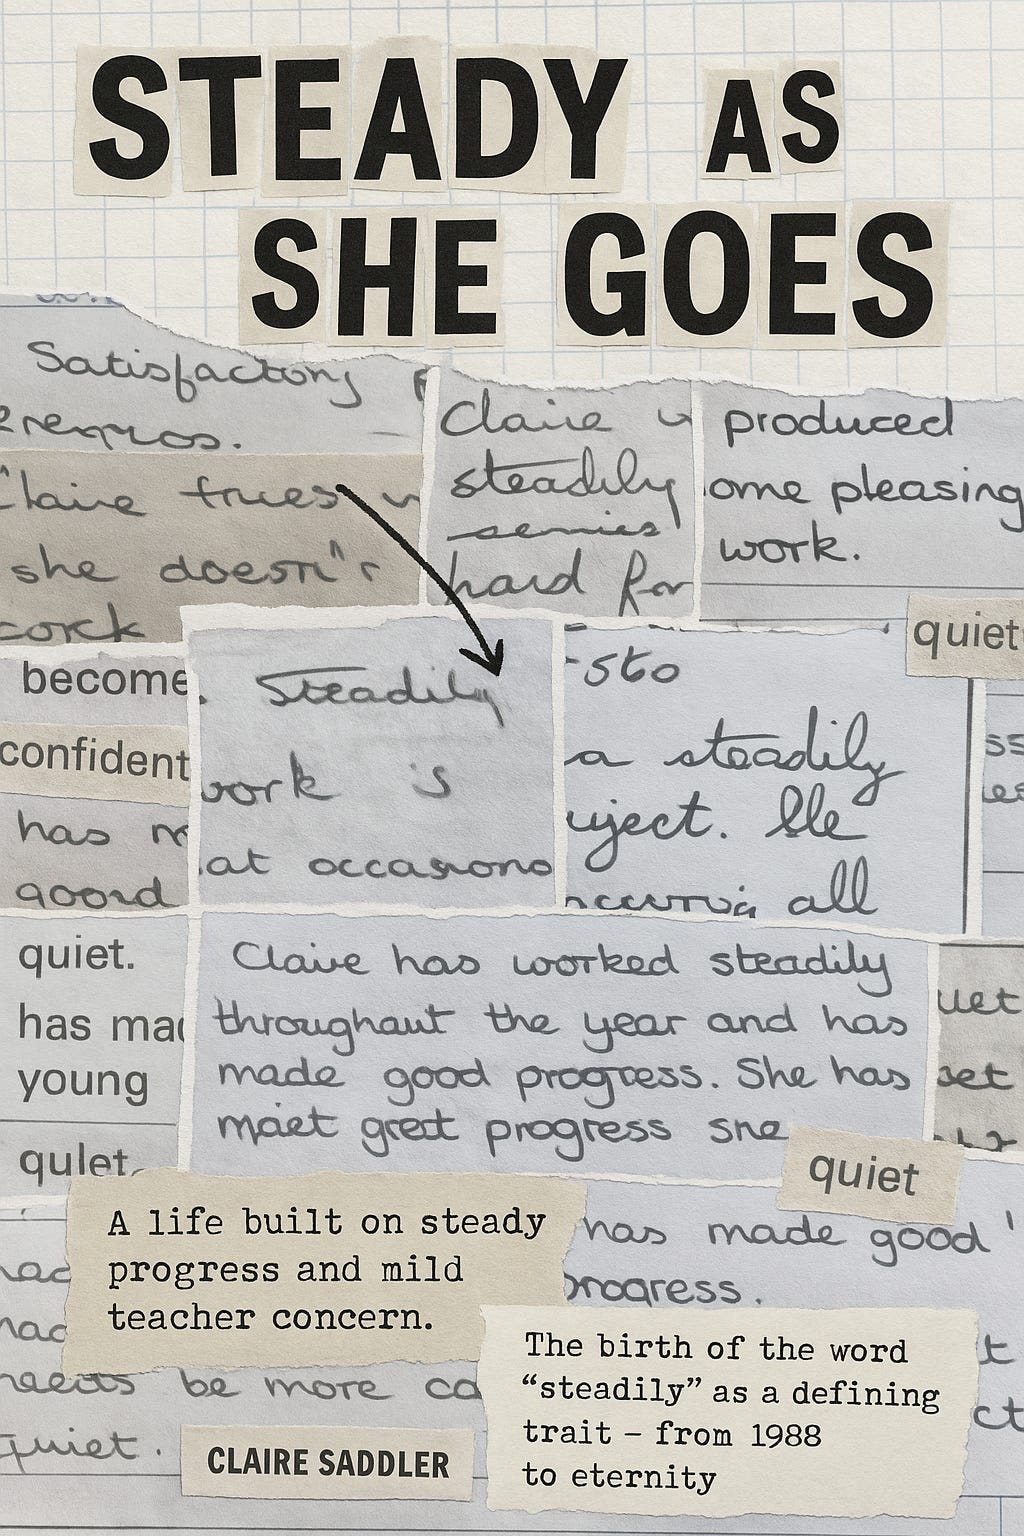 STEADY AS
SHE GOES
Satisfactory
Claire
produced
Claire
steadily
ome pleasing
she doesn't
hard for
work.
quiet
become
Steadily
a steadily
confident
work is
has
at occasiono
all
quiet.
Claire has worked steadily
has mad
throughout the year and has
young
made good progress. She has
progress sne
qulet
quiet
A life built on steady
progress and mild
teacher concern.
has made good
progress.
The birth of the word
“steadily” as a defining
trait – from 1988
to eternity
be more
quiet.
CLAIRE SADDLER